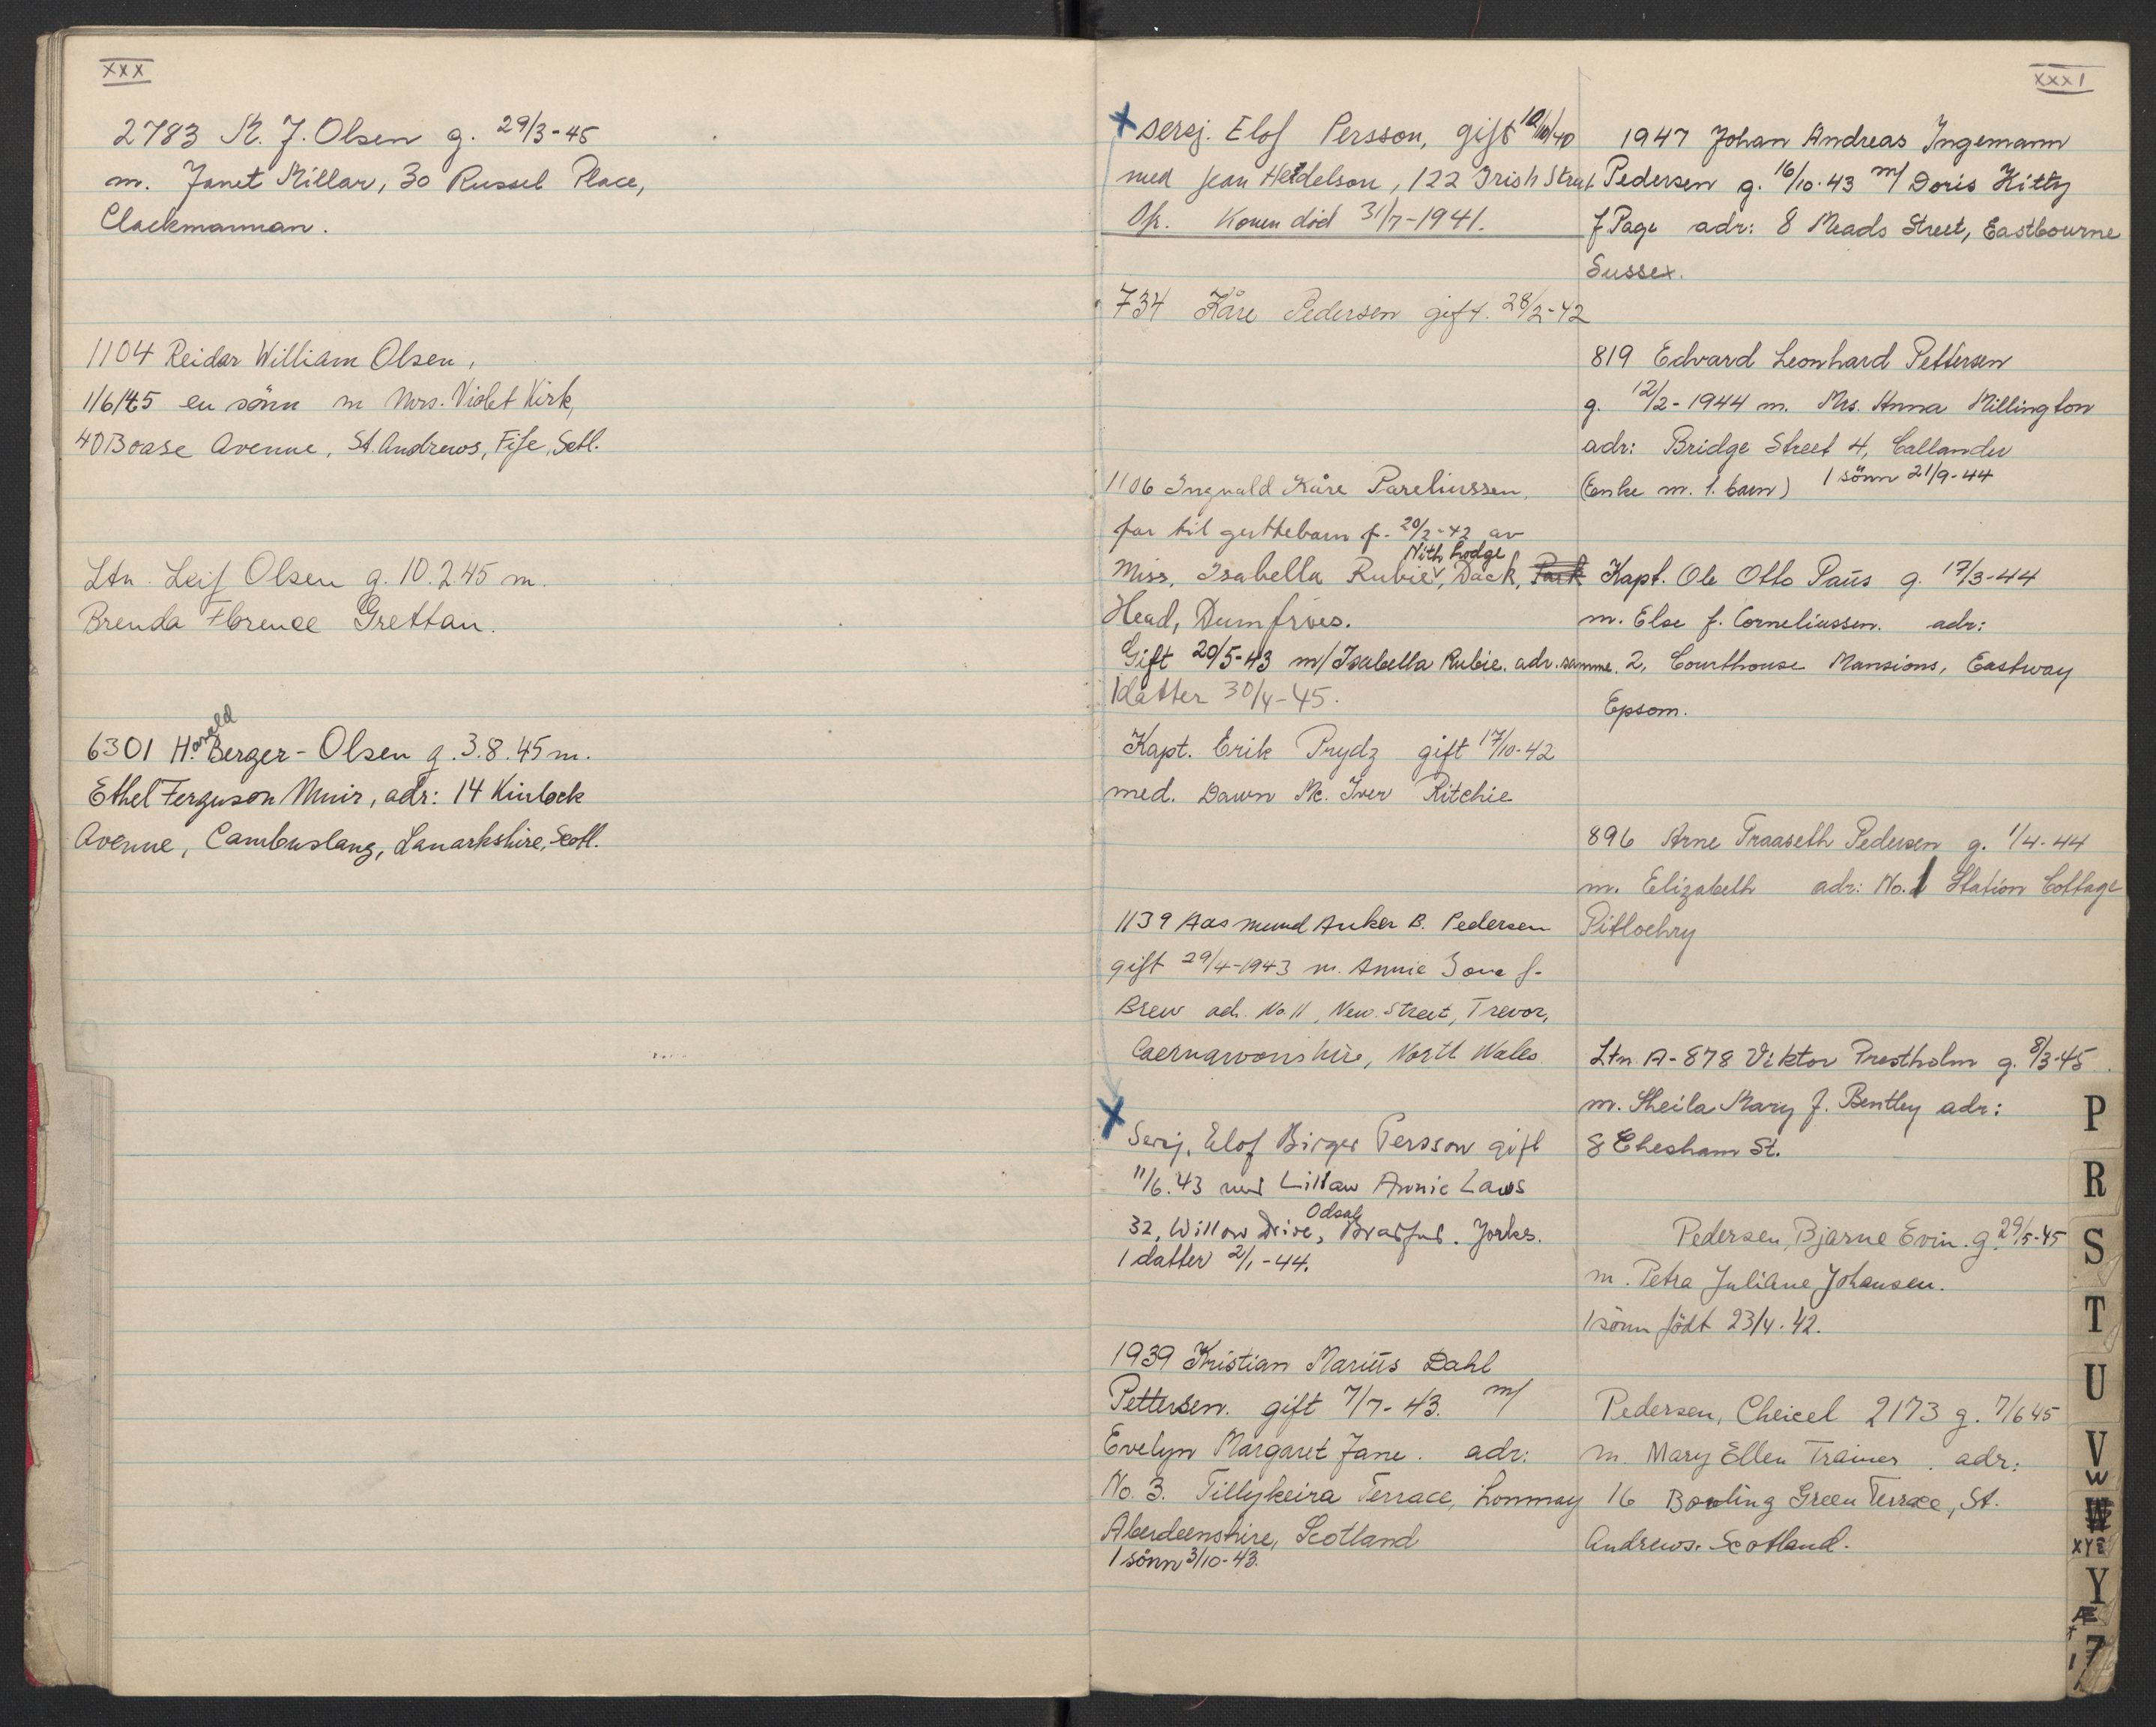 XXX
2783 K. J. Olsen g. 29/3-45
m. Janet Millar, 30 Russel Place,
Clackmannan.
1104 Reidar William Olsen,
1/6/45 en sönn m Mrs. Violet Kirk,
40 Boase Avenue, St. Andrews, Fife, Scotl.
Ltn. Leif Olsen g. 10.2.45 m.
Brenda Florence Grettan.
6301 Harald Berger-Olsen g. 3.8.45 m.
Ethel Ferguson Muir, adr: 14 Kinlock
Avenue, Cambuslang, Lanarkshire, Scotl.
XXXI
x sersj. Elof Persson, gift 12/10/40
med Jean Heddelson, 122 Irish Street
Ok. Konen död 31/7-1941.
734 Kåre Pedersen gift. 28/2-42
1106 Ingvald Kåre Pareliussen,
far til guttebarn f. 20/2-42 av
Nith Lodge
Miss, Isabella Rubie, Dack, Park
Head, Dumfries.
Gift 20/5-43 m/Isabella Rubie. adr. samme.
1 datter 30/4-45.
Kapt. Erik Prydz gift 17/10-42
med. Dawn Mc. Iver Ritchie
1139 Aasmund Anker B. Pedersen
gift 29/4-1943 m. Annie Iona f.
Brew adr. No 11, New. Street, Trevor,
Caernarvonshire, North Wales
x
Sersj. Elof Birger Persson gift
11/6.43 med Lillian Annie Laws
Odsal
32, Willow Drive, Bradford. Yorks.
1 datter 2/1-44.
1939 Kristian Marius Dahl
Pettersen. gift 7/7-43. m/
Evelyn Margaret Jane. adr:
No. 3. Tillykeira Terrace, Lonmay
Aberdeenshire, Scotland
1 sönn 3/10-43.
1947 Johan Andreas Ingemann
Pedersen g. 16/10-43 m/ Doris Kitty
f Page adr: 8 Meads Street, Eastbourne
Sussex.
819 Edvard Leonhard Pettersen
g. 12/2-1944 m. Mrs. Anna Millington
adr: Bridge Street 4, Callander
(Enke m. 1. barn) 1 sönn 21/9-44
Kapt. Ole Otto Paus g. 17/3-44
m. Else f. Corneliussen. adr:
2, Courthouse Mansions, Eastway
Epsom.
896 Arne Traaseth Pedersen g. 1/4-44
m. Elizabeth adr: No. 1 Station Cottage
Pitlochry
Ltn A-878 Viktor Prestholm g. 8/3-45
m. Sheila Mary f. Bentley adr:
8 Chesham St.
Pedersen, Bjarne Evin. g. 29/5-45
m. Petra Juliane Johansen.
1 sönn födt 23/4-42.
Pedersen, Cheicel 2173 g. 7/6 45
m. Mary Ellen Trainer. adr:
16 Bowling Green Terrace, St.
Andrews. Scotland.
P
R
S
T
U
V
W
W
XYZ
Y
Æ